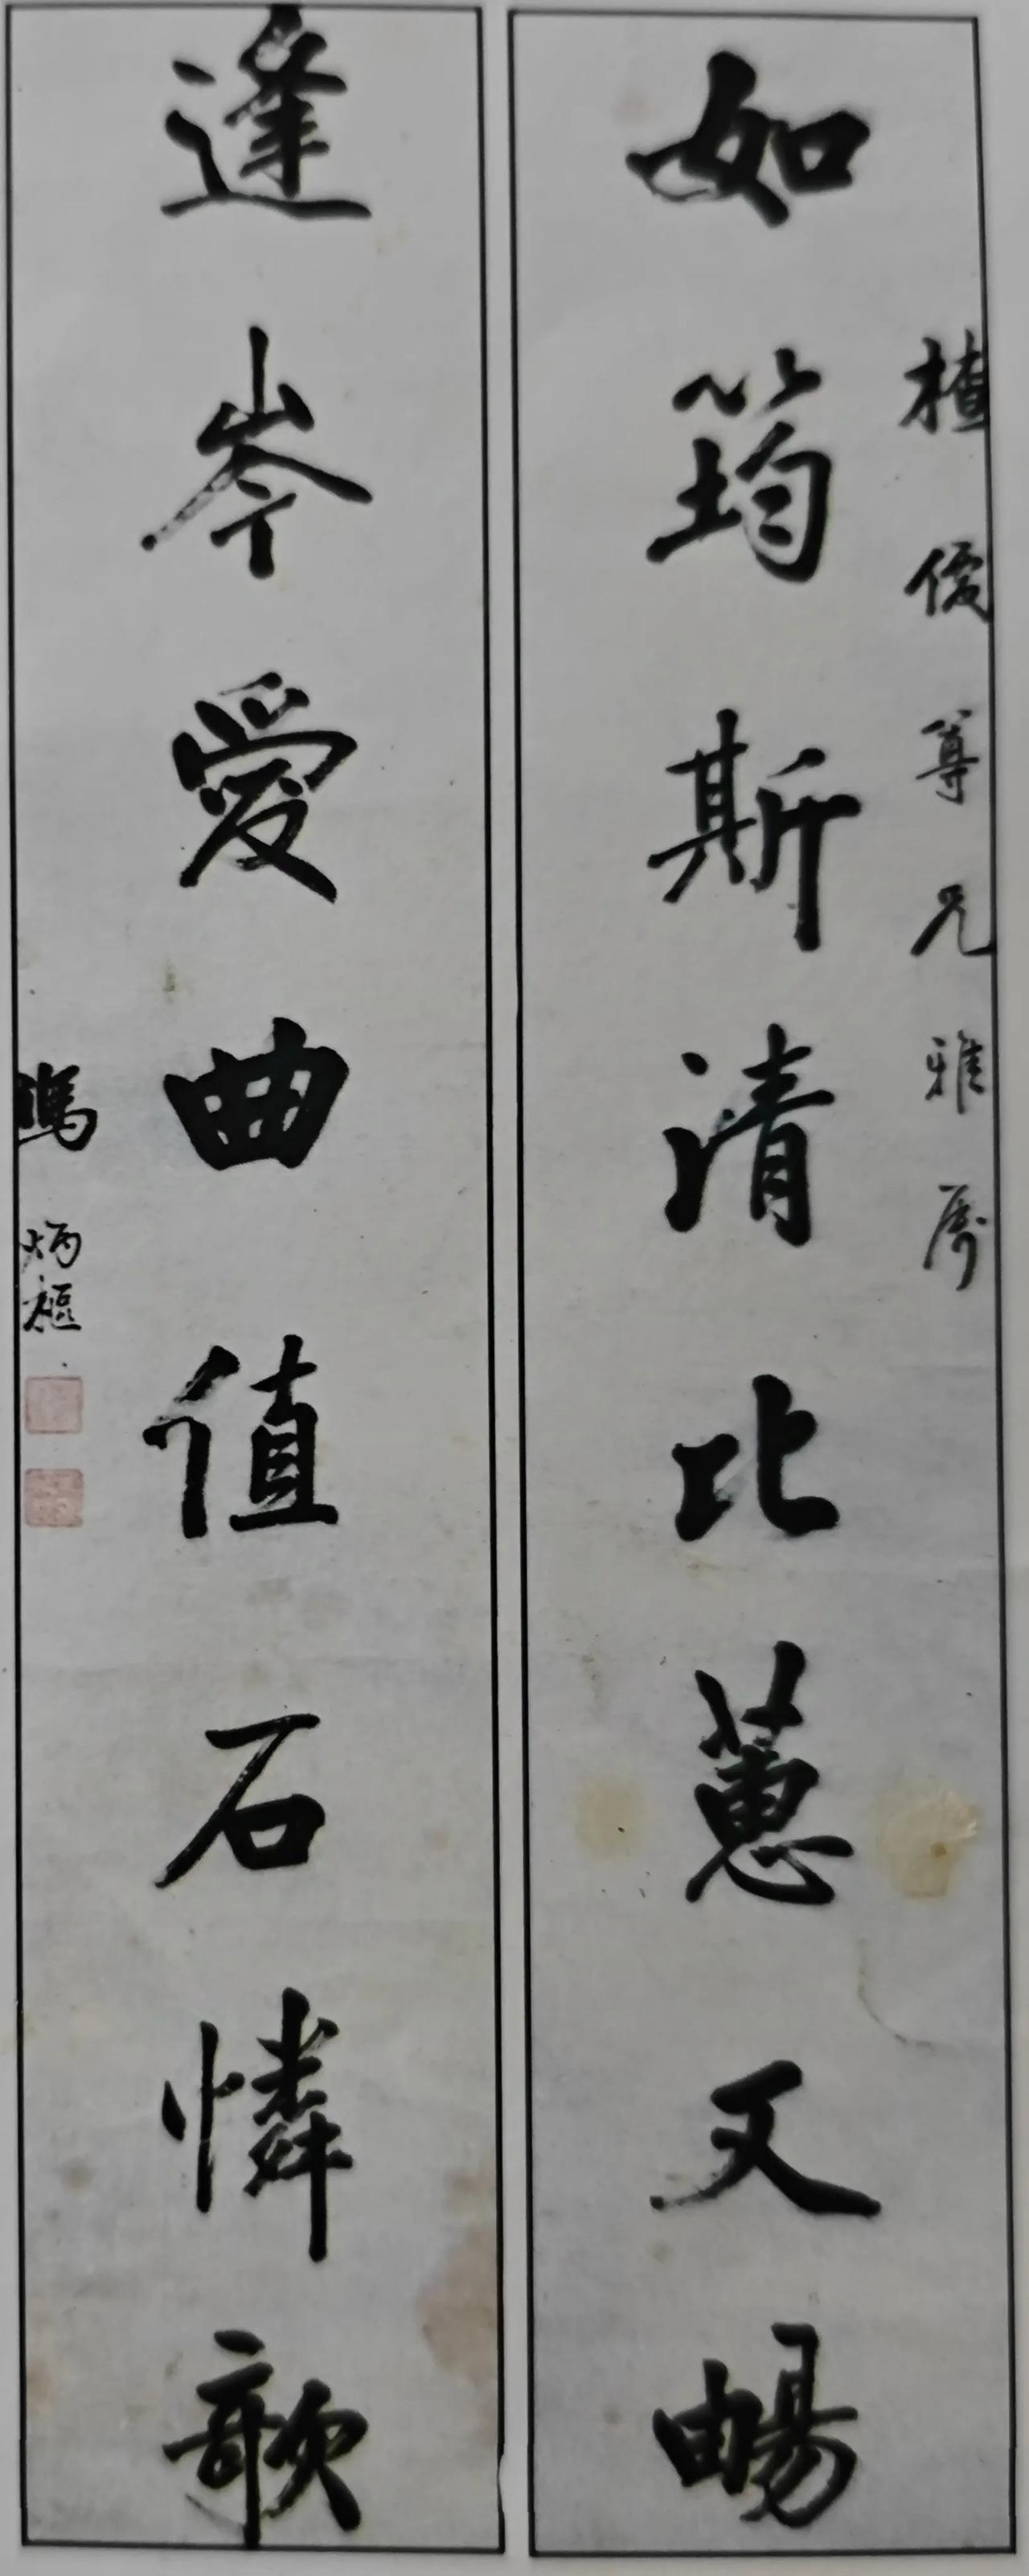 楂僾尊兄雅屬
如筠斯清比蕙又暢
逢岑愛曲值石憐歌
馮炳樞